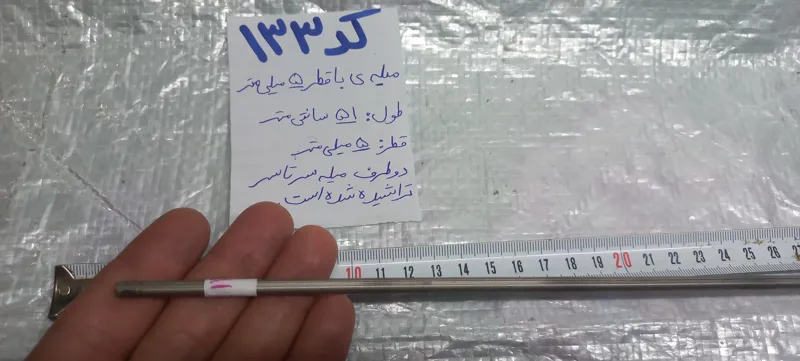 کد ۱۳۳
میله ی با قطر ۵ میلی متر
طول: ۵۱ سانتی متر
قطر: ۵ میلی متر
دو طرف میله سرتاسر
تراشیده شده است.
10 11 12 13 14 15 16 17 18 19 20 21 22 23 24 25 26 27